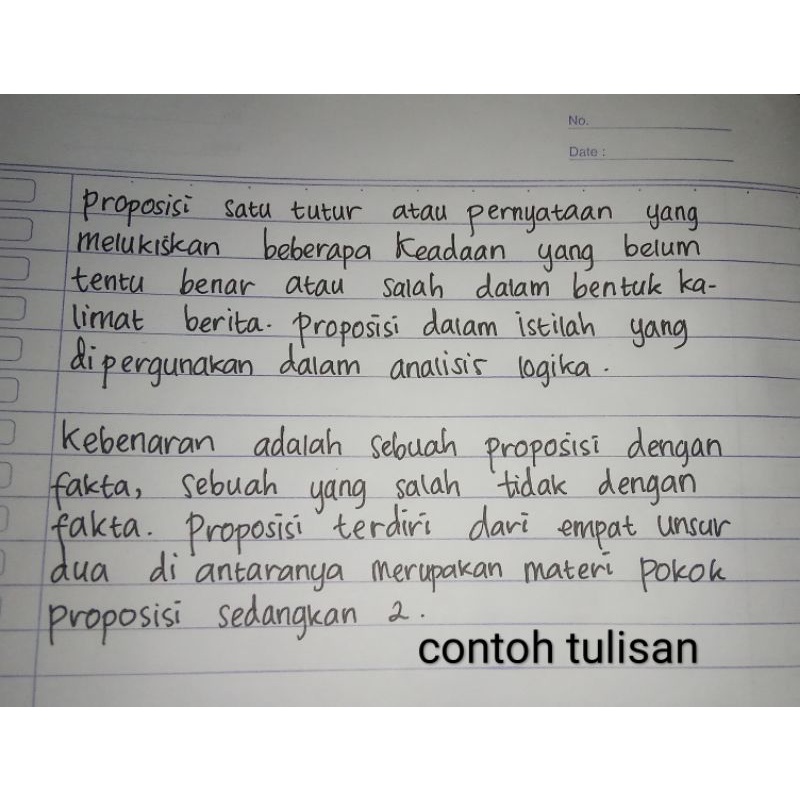 No.
Date :
Proposisi satu tutur atau pernyataan yang
melukiskan beberapa keadaan yang belum
tentu benar atau salah dalam bentuk ka-
limat berita. Proposisi dalam istilah yang
dipergunakan dalam analisis logika.
Kebenaran adalah sebuah proposisi dengan
fakta, sebuah yang salah tidak dengan
fakta. Proposisi terdiri dari empat unsur
dua di antaranya merupakan materi pokok
proposisi sedangkan 2.
contoh tulisan